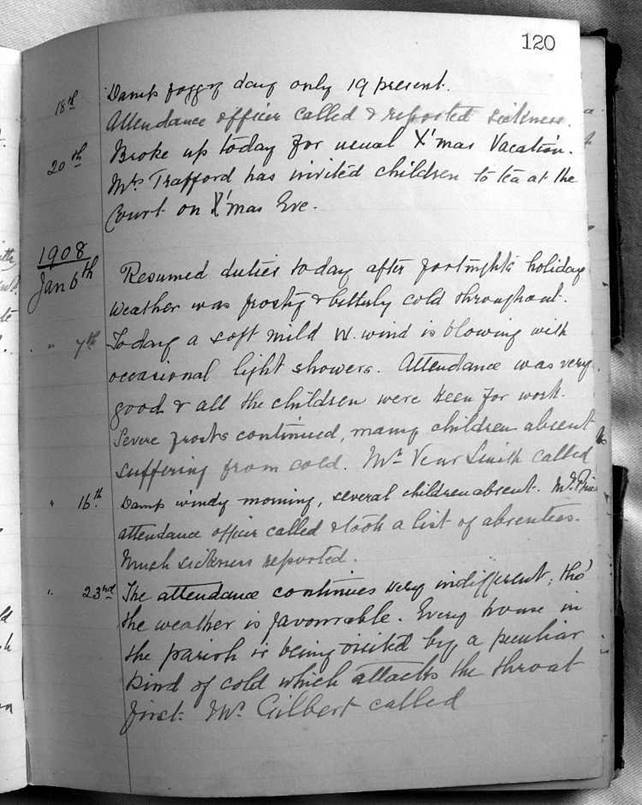 120
18th Damp foggy day only 19 present.
Attendance officer called & reported sickness.
20th Broke up today for usual X'mas Vacation.
Mrs Trafford has invited children to tea at the
Court on X'mas Eve.
1908
Jan 6th Resumed duties today after fortnights holiday
Weather was frosty & bitterly cold throughout.
" 7th Today a soft mild W. wind is blowing with
occasional light showers. Attendance was very
good & all the children were keen for work.
Severe frosts continued, many children absent
suffering from cold. Mr Smith called
" 16th Damp windy morning, several children absent. Mr
attendance officer called & took a list of absentees.
Much sickness reported.
" 23rd The attendance continues very indifferent, tho'
the weather is favourable. Every house in
the parish is being visited by a peculiar
kind of cold which attacks the throat
first. Mr Gilbert called